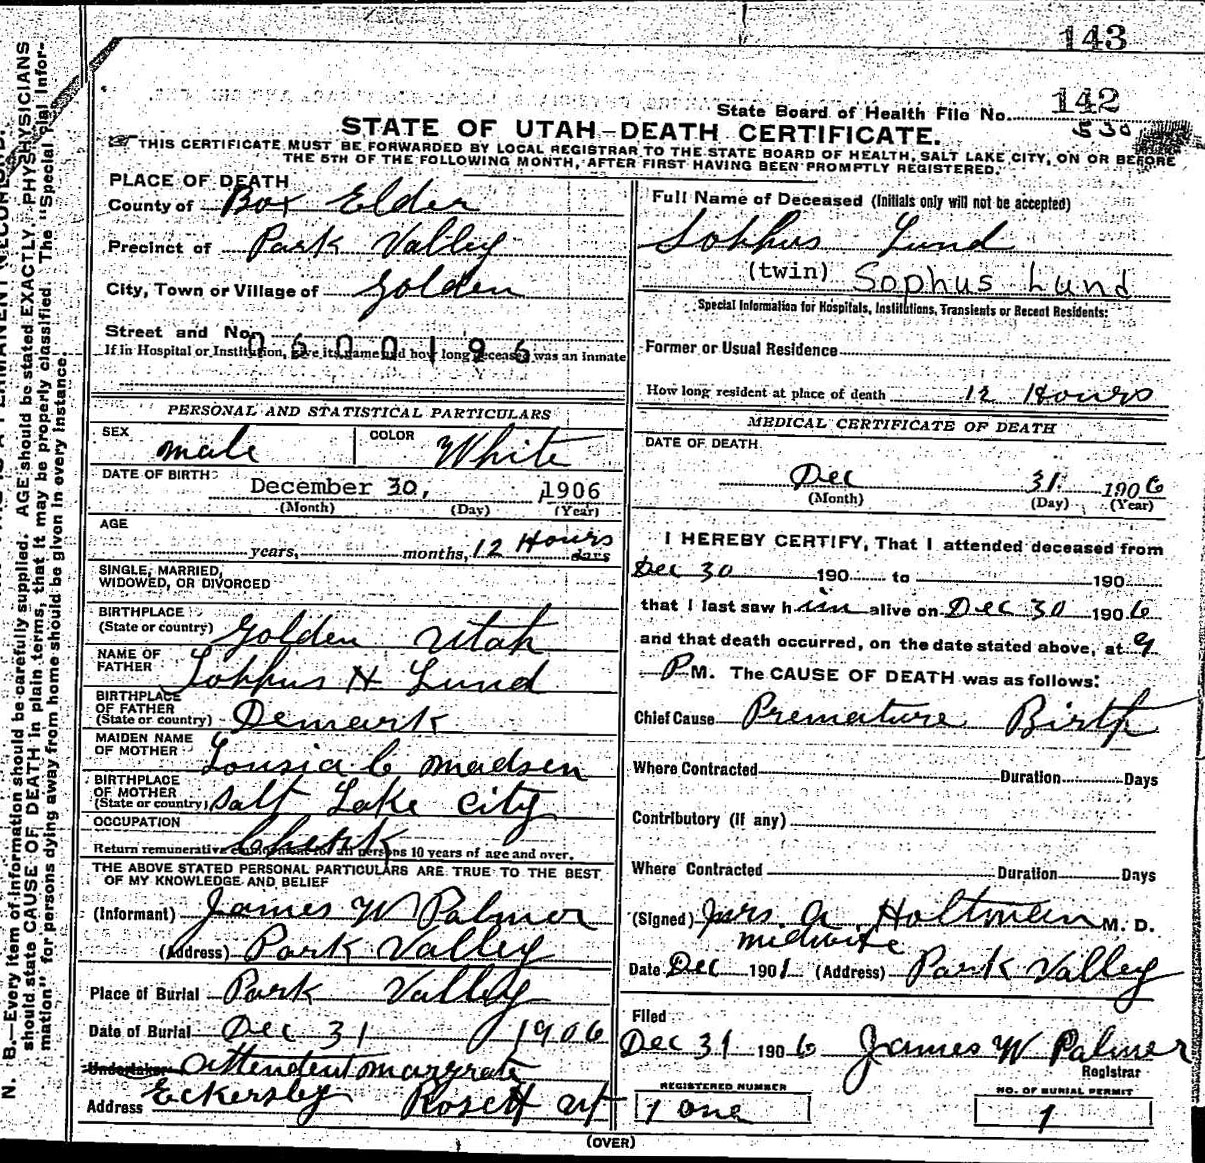 143
State Board of Health File No. 142
530
STATE OF UTAH—DEATH CERTIFICATE.
THIS CERTIFICATE MUST BE FORWARDED BY LOCAL REGISTRAR TO THE STATE BOARD OF HEALTH, SALT LAKE CITY, ON OR BEFORE
THE 5TH OF THE FOLLOWING MONTH, AFTER FIRST HAVING BEEN PROMPTLY REGISTERED.
PLACE OF DEATH
County of Box Elder
Precinct of Park Valley
City, Town or Village of Golden
Street and No.
0600196
If in Hospital or Institution, give its name and how long deceased was an inmate
PERSONAL AND STATISTICAL PARTICULARS
SEX male COLOR White
DATE OF BIRTH December 30, 1906
(Month) (Day) (Year)
AGE
years, months, 12 Hours days
SINGLE, MARRIED,
WIDOWED, OR DIVORCED
BIRTHPLACE
(State or country) Golden Utah
NAME OF
FATHER Sophus H Lund
BIRTHPLACE
OF FATHER
(State or country) Demark
MAIDEN NAME
OF MOTHER Lousia C Madsen
BIRTHPLACE
OF MOTHER
(State or country) Salt Lake City
OCCUPATION
Return remunerative employment for all persons 10 years of age and over.
THE ABOVE STATED PERSONAL PARTICULARS ARE TRUE TO THE BEST
OF MY KNOWLEDGE AND BELIEF
(Informant) James W Palmer
(Address) Park Valley
Place of Burial Park Valley
Date of Burial Dec 31 1906
Undertaker attendent margrate
Address Eckersley Rosett ut
Full Name of Deceased (Initials only will not be accepted)
Sophus Lund
(twin) Sophus Lund
Special Information for Hospitals, Institutions, Transients or Recent Residents:
Former or Usual Residence
How long resident at place of death 12 Hours
MEDICAL CERTIFICATE OF DEATH
DATE OF DEATH
Dec 31 1906
(Month) (Day) (Year)
I HEREBY CERTIFY, That I attended deceased from
Dec 30 190 to 190
that I last saw him alive on Dec 30 1906
and that death occurred, on the date stated above, at 9
P M. The CAUSE OF DEATH was as follows:
Chief Cause Premature Birth
Where Contracted Duration Days
Contributory (if any)
Where Contracted Duration Days
(Signed) Mrs A Holtman M. D.
midwife
Date Dec 1901 (Address) Park Valley
Filed
Dec 31 1906 James W Palmer
Registrar
REGISTERED NUMBER
1 one
NO. OF BURIAL PERMIT
1
(OVER)
N. B.—Every item of information should be carefully supplied. AGE should be stated EXACTLY. PHYSICIANS
should state CAUSE OF DEATH in plain terms, that it may be properly classified. The "Special Infor-
mation" for persons dying away from home should be given in every instance.